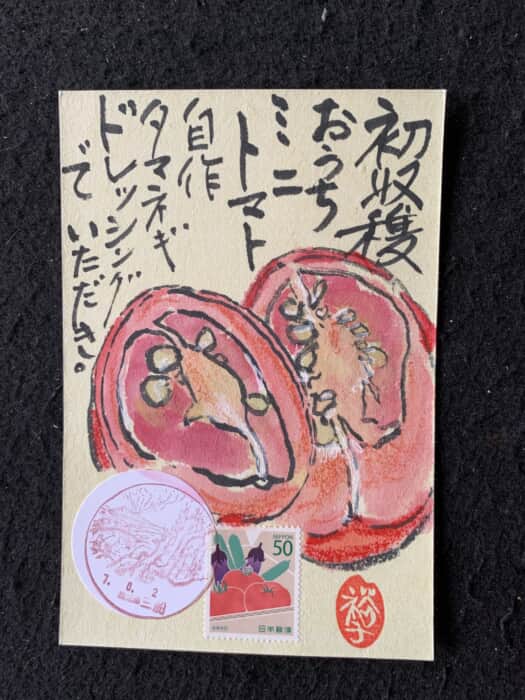 初収穫
おうち
ミニ
トマト
自作
タマネギ
ドレッシング
で いただき。
7. 8. 2
三朝
NIPPON
50
日本郵便
裕子